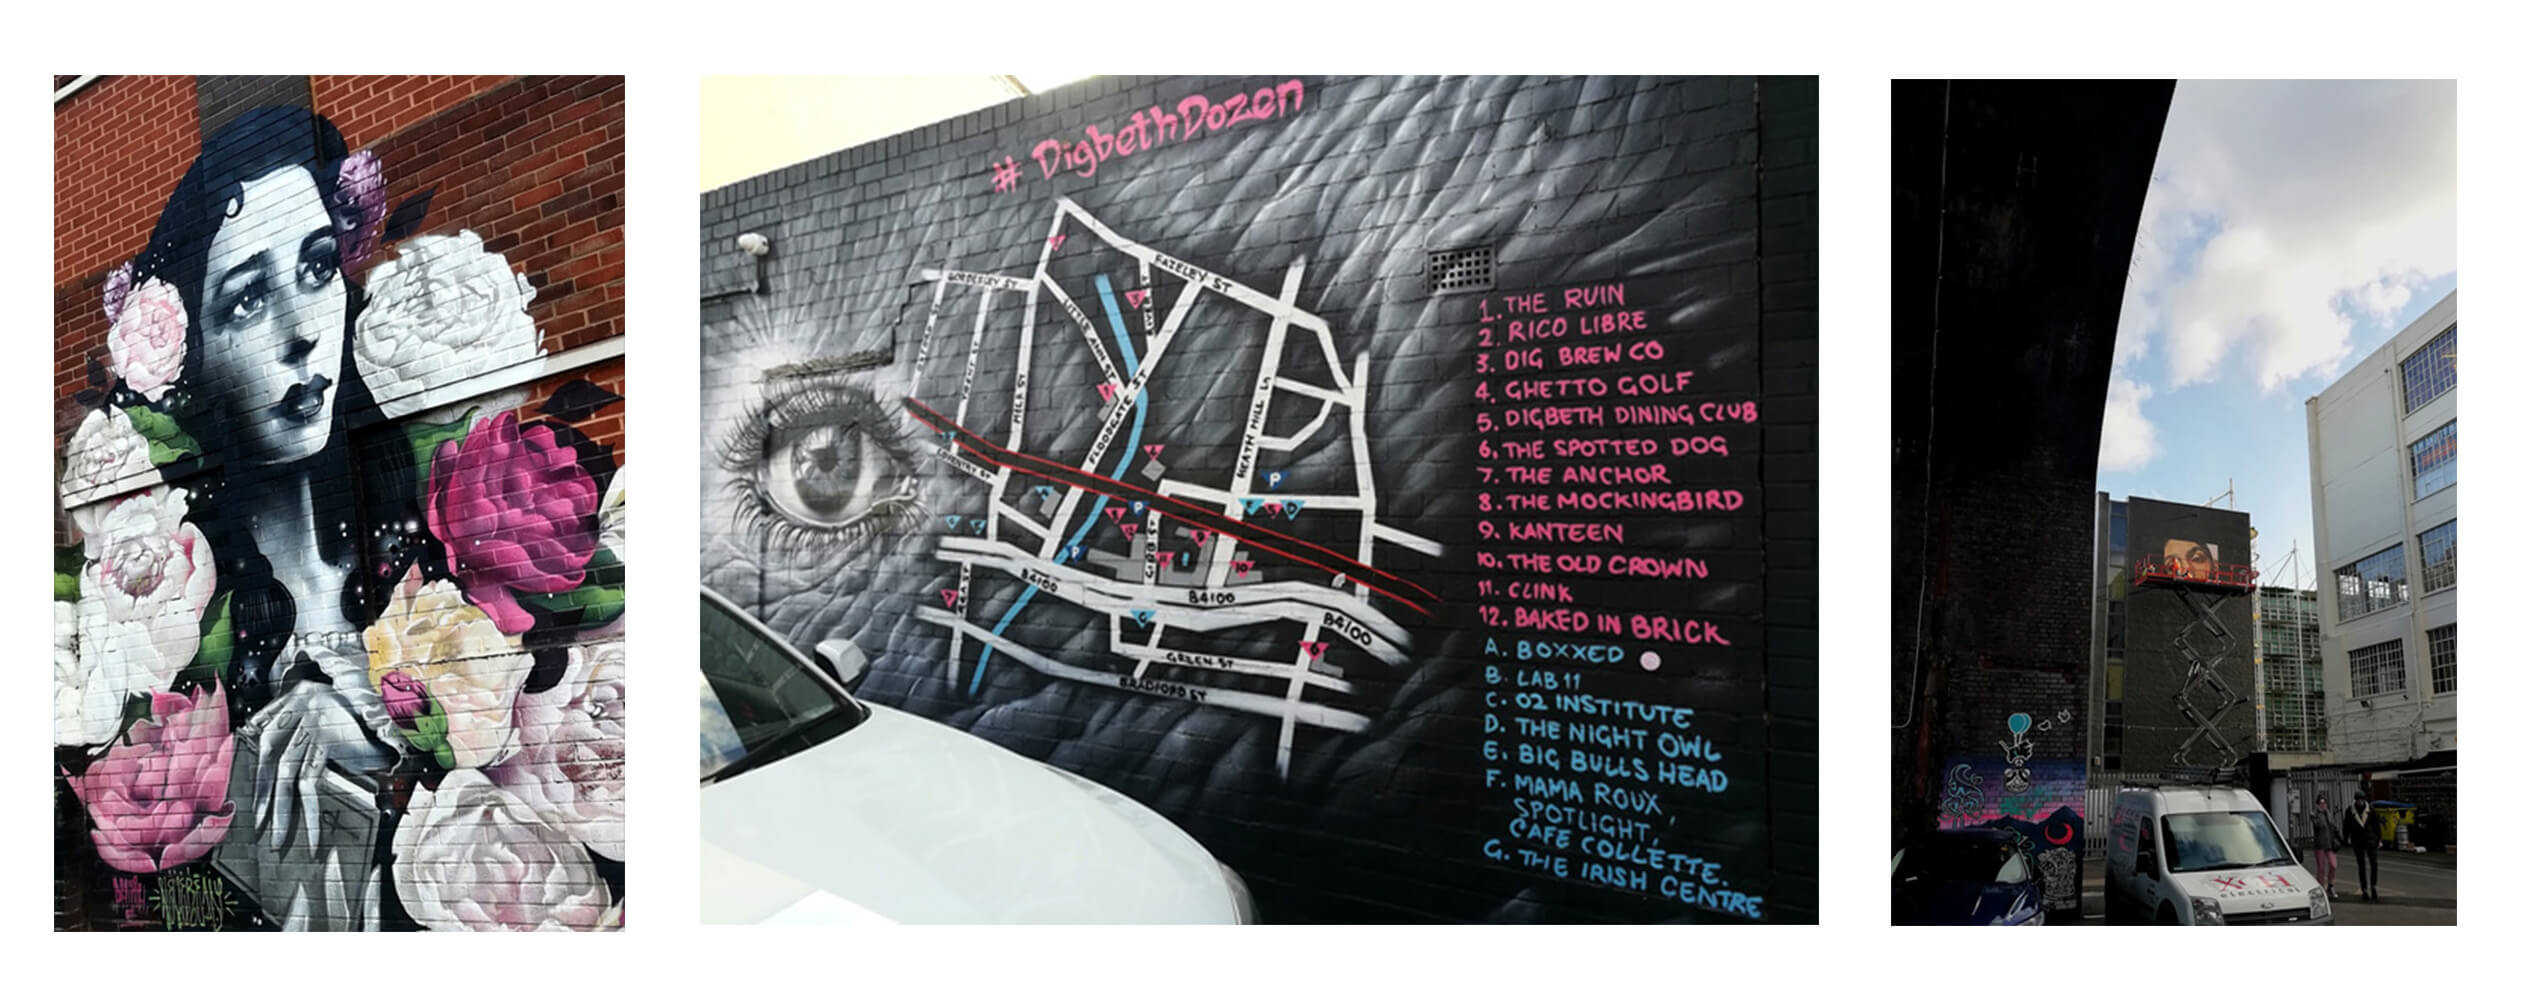 # DigbethDozen
FAZELEY ST
MILK ST
FLOODGATE ST
HEATH MILL LN
GIBB ST
B4100
B4100
B4100
GREEN ST
BRADFORD ST
P
P
P
1. THE RUIN
2. RICO LIBRE
3. DIG BREW CO
4. GHETTO GOLF
5. DIGBETH DINING CLUB
6. THE SPOTTED DOG
7. THE ANCHOR
8. THE MOCKINGBIRD
9. KANTEEN
10. THE OLD CROWN
11. CLINK
12. BAKED IN BRICK
A. BOXXED
B. LAB 11
C. O2 INSTITUTE
D. THE NIGHT OWL
E. BIG BULLS HEAD
F. MAMA ROUX,
SPOTLIGHT,
CAFE COLLETTE.
G. THE IRISH CENTRE
electrical